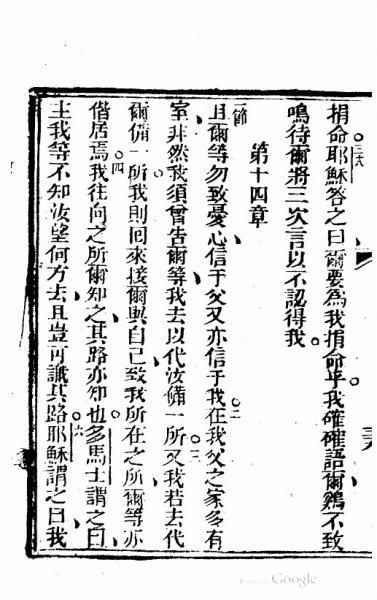 捐命耶穌答之曰爾要為我捐命乎我確確語爾鷄不致
三八
鳴待爾將三次言以不認得我
第十四章
一節
且爾等勿致憂心信于父又亦信于我在我父之家多有
二
室非然我須曾告爾等我去以代汝備一所又我若去代
三
爾備一所我則囘來接爾與自己致我所在之所爾等亦
偕居焉我往向之所爾知之其路亦知也多馬士謂之曰
四
主我等不知汝望何方去且豈可識其路耶穌謂之曰我
六
Google